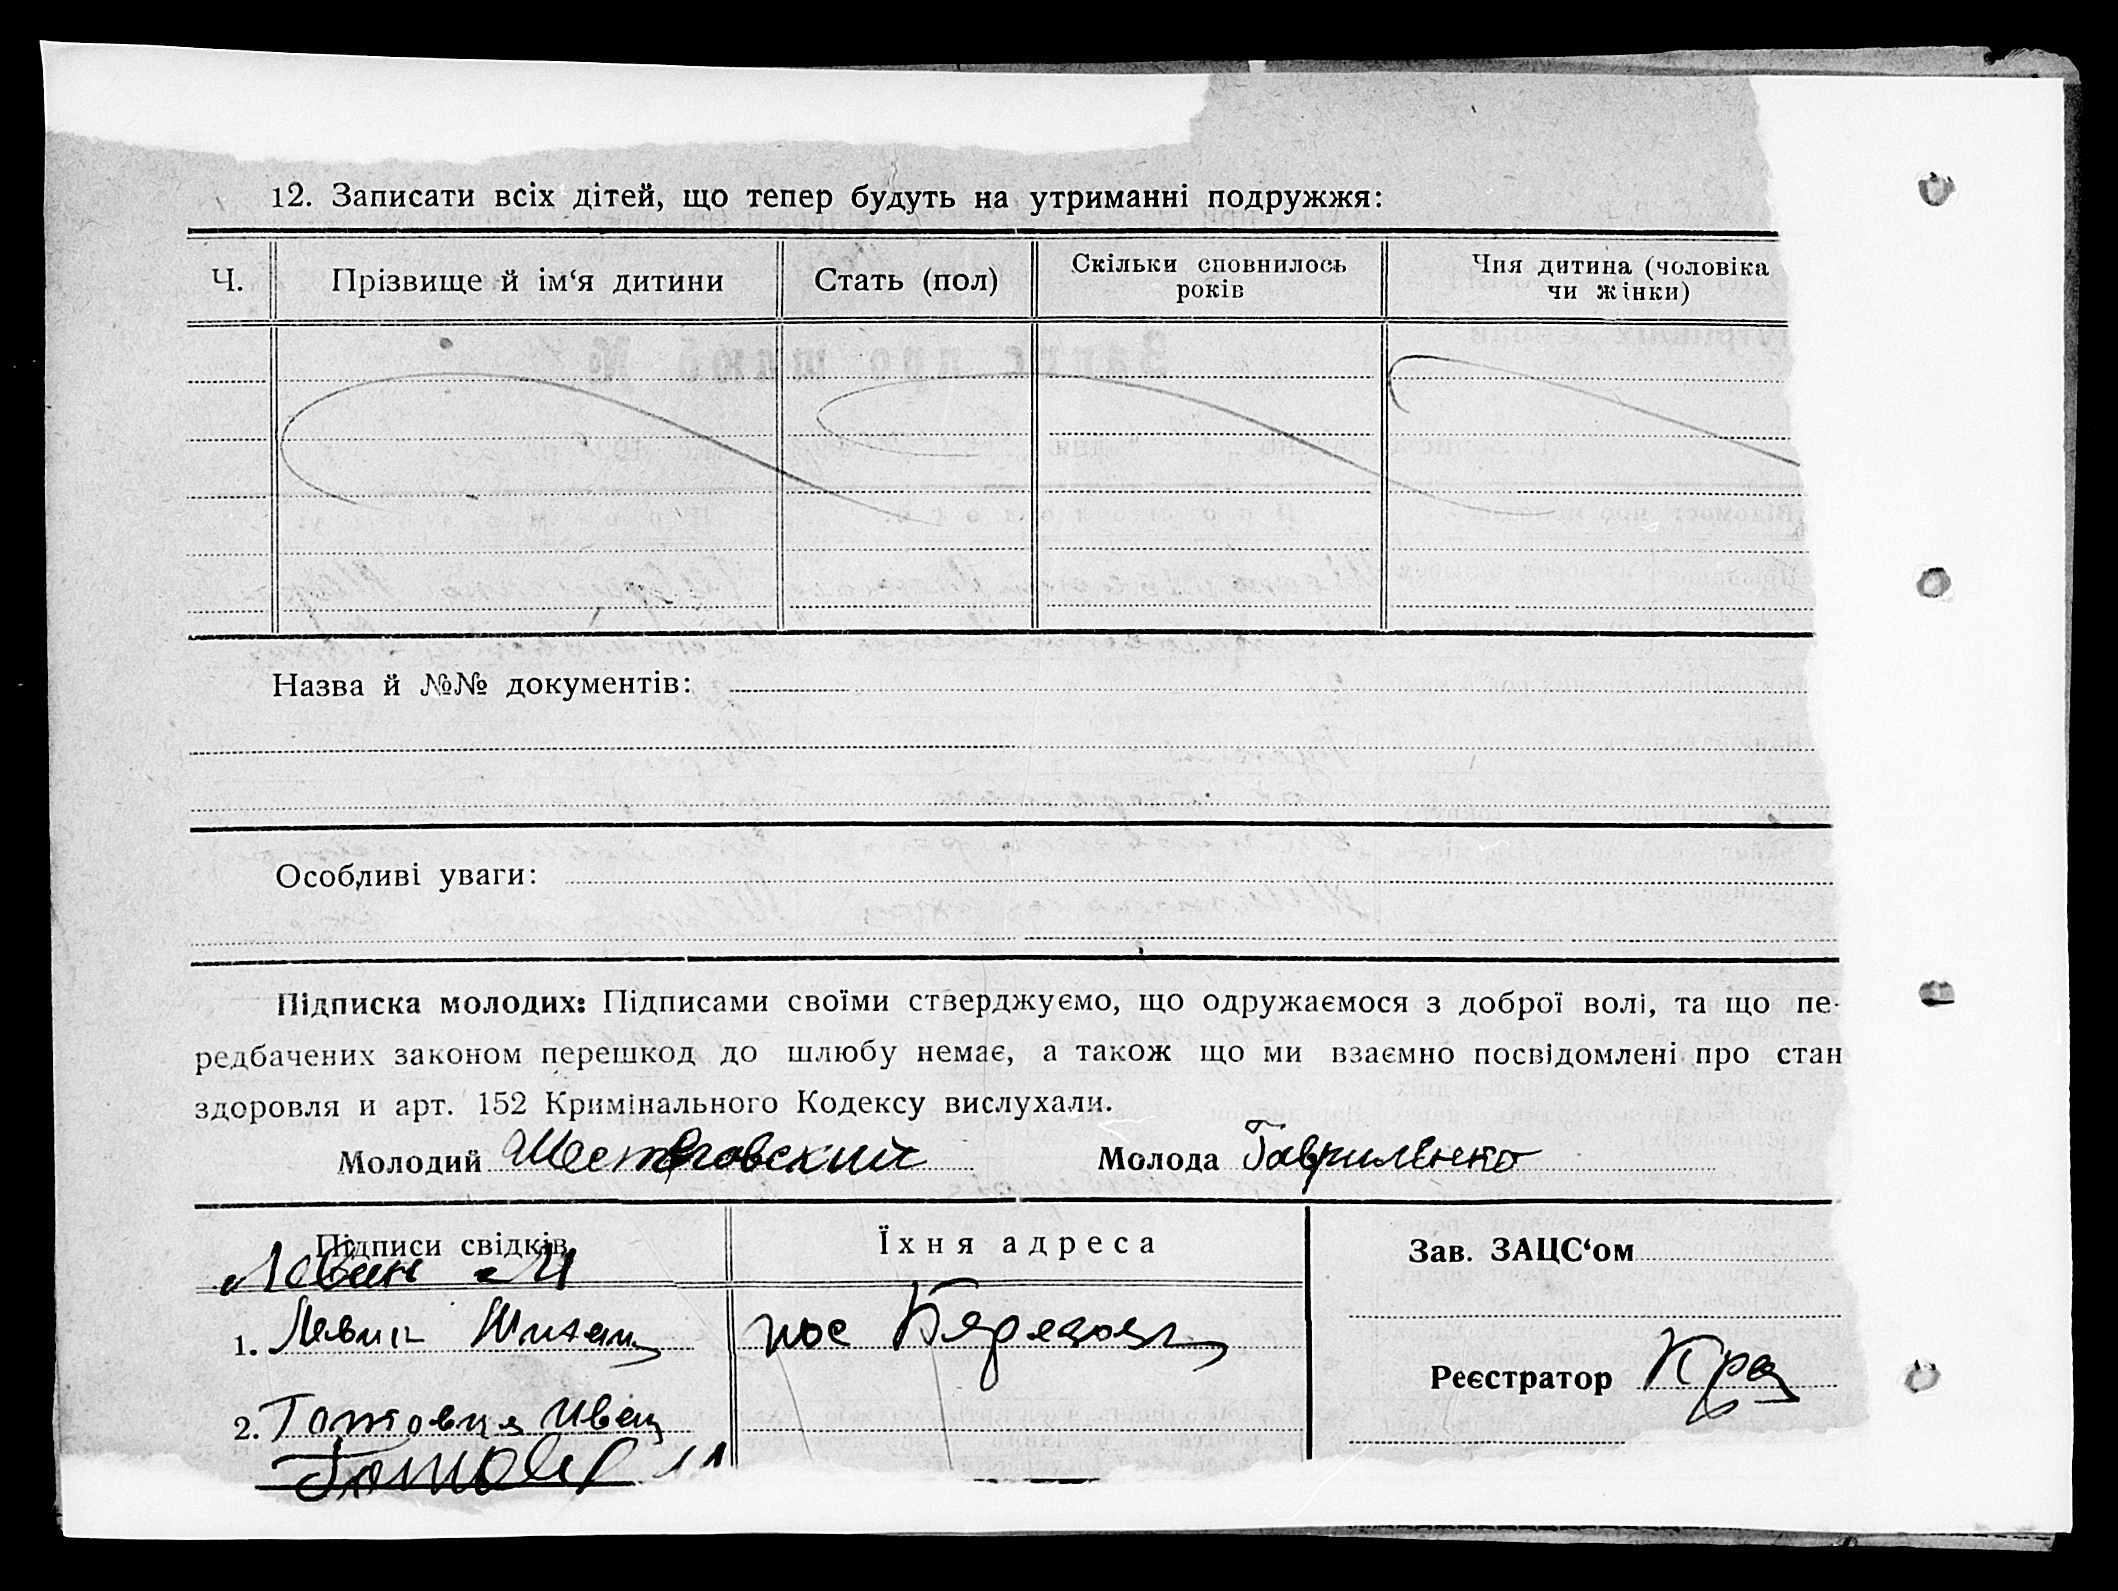 12. Записати всіх дітей, що тепер будуть на утриманні подружжя:
Ч. Прізвище й ім‘я дитини Стать (пол) Скільки сповнилось років Чия дитина (чоловіка чи жінки)
Назва й №№ документів:
Особливі уваги:
Підписка молодих: Підписами своїми стверджуємо, що одружаємося з доброї волі, та що пе-
редбачених законом перешкод до шлюбу немає, а також що ми взаємно посвідомлені про стан
здоровля и арт. 152 Кримінального Кодексу вислухали.
Молодий Шестяговский Молода Гавриленко
Підписи свідків Їхня адреса Зав. ЗАЦС‘ом
Левин М
1. Левин пос
Реєстратор
2. Готовця Иван